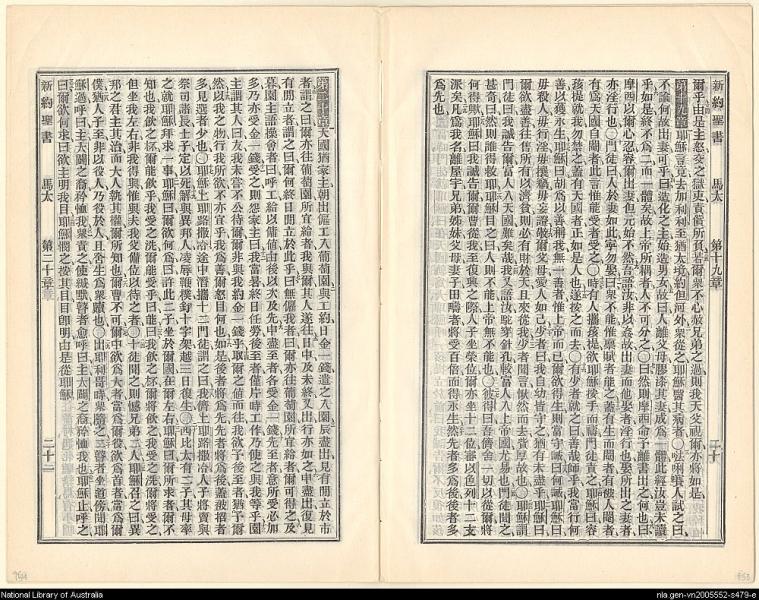 新約聖書 馬太 第十九章 二十
爾乎由是主怒交之獄吏責償所負若爾衆不心赦兄弟之過則我天父視爾亦將如是
第十九章耶穌言竟去加利利至猶太境約但河外衆從之耶穌醫其病者○唎人試之曰
不論何故出妻可乎曰造化之主始造男女故曰人離父母膠漆其妻成爲一體此經汝豈未讀
乎如是終不爲二而一體矣故上帝所耦者人不可分之○曰然則摩西命予離書出之何也曰
摩西以爾心忍容爾出妻也元始不然吾語汝非以姦故出妻而他娶者淫行也娶所出之妻者
亦淫行也○門徒曰人於妻如此寧勿娶曰衆不能惟稟賦者能之蓋有生而閹者有被人閹者
有爲天國自閹者此言惟能受者受之○時有人攜孩提欲耶穌按手而禱門徒責之耶穌曰容
孩提就我勿禁之蓋有天國者正如是人也遂按之而去○有少者就之曰善哉師乎我當行何
善以獲永生耶穌曰胡爲以善稱我無一善者惟上帝而已爾欲得生則當守誡曰何誡耶穌曰
毋殺人毋行淫毋攘竊毋妄證敬爾父母愛人如己少者曰我自幼皆守之猶有未盡乎耶穌曰
爾欲盡善往售所有以濟貧則必有財於天且來從我少者聞言愀然而去貲厚故也○耶穌謂
門徒曰我誠告爾富人入天國難矣哉我又語汝駝穿針孔較富人入上帝國尤易也門徒聞之
甚奇曰然則誰得救耶穌目之曰人則不能上帝無不能也○彼得曰吾儕舍一切以從爾將
何得歟耶穌曰我誠告爾爾曹從我至復興之際人子坐榮位爾亦坐十二位審以色列十二支
派矣凡爲我名離屋宇兄弟姊妹父母妻子田疇者將受百倍而得永生然先者多爲後後者多
爲先也
第二十章天國猶家主朝出傭工入葡萄園與工約日金一錢遣之入園辰盡出見有閒立於市
者謂之曰爾亦往葡萄園所宜給者我與爾其人遂往日中及未終又出行亦如之申盡出復見
有閒立者謂之曰爾何終日閒立於此乎曰無傭我者曰爾亦往葡萄園所宜給者爾可得之及
暮園主語操會者曰呼工給以傭值由後以次及先申盡至者各受金一錢先至者意所受必加
多乃亦受金一錢受之則怨家主曰我當暑終日任勞後至者僅片時工作乃使之與我等乎園
主謂其人曰友我未嘗不公待爾爾非與我約金一錢乎取爾之值而往我欲予後至者猶予爾
然以我之物行我所欲不亦宜乎我爲善爾怒目何也如是後者將爲先先者將爲後蓋被招者
多見選者少也○耶穌上耶路撒冷途中潛攜十二門徒謂之曰我儕上耶路撒冷人子將賣與
祭司諸長士子定以死解與異邦人凌辱鞭撲釘十字架越三日復生○西比太有二子其母率
之就耶穌拜求一事耶穌曰爾欲何爲曰許此二子坐於爾國在爾左右耶穌曰爾所求者爾不
知也我飲之杯爾能飲乎我受之洗爾能受乎曰能曰我飲之杯爾將飲之我受之洗爾將受之
但坐我左右非我得與惟與夫我父備位以待之者○十徒聞之則憾兄弟二人耶穌召之曰異
邦之君主其治而大人執其權爾所知也爾曹不可爾中欲爲大者當爲爾役欲爲首者當爲爾
僕猶人子至非以役人乃役於人且舍生爲衆贖也○出耶利哥時衆隨之二瞽者坐道傍聞耶
穌過呼曰主大闢之裔矜恤我衆責之使緘默瞽者愈呼曰主大闢之裔矜恤我也耶穌止呼之
曰爾欲何求曰欲主明我目耶穌憫之按其目目卽明由是從耶穌
新約聖書 馬太 第二十章 二十一
National Library of Australia
nla.gen-vn2005552-s479-e